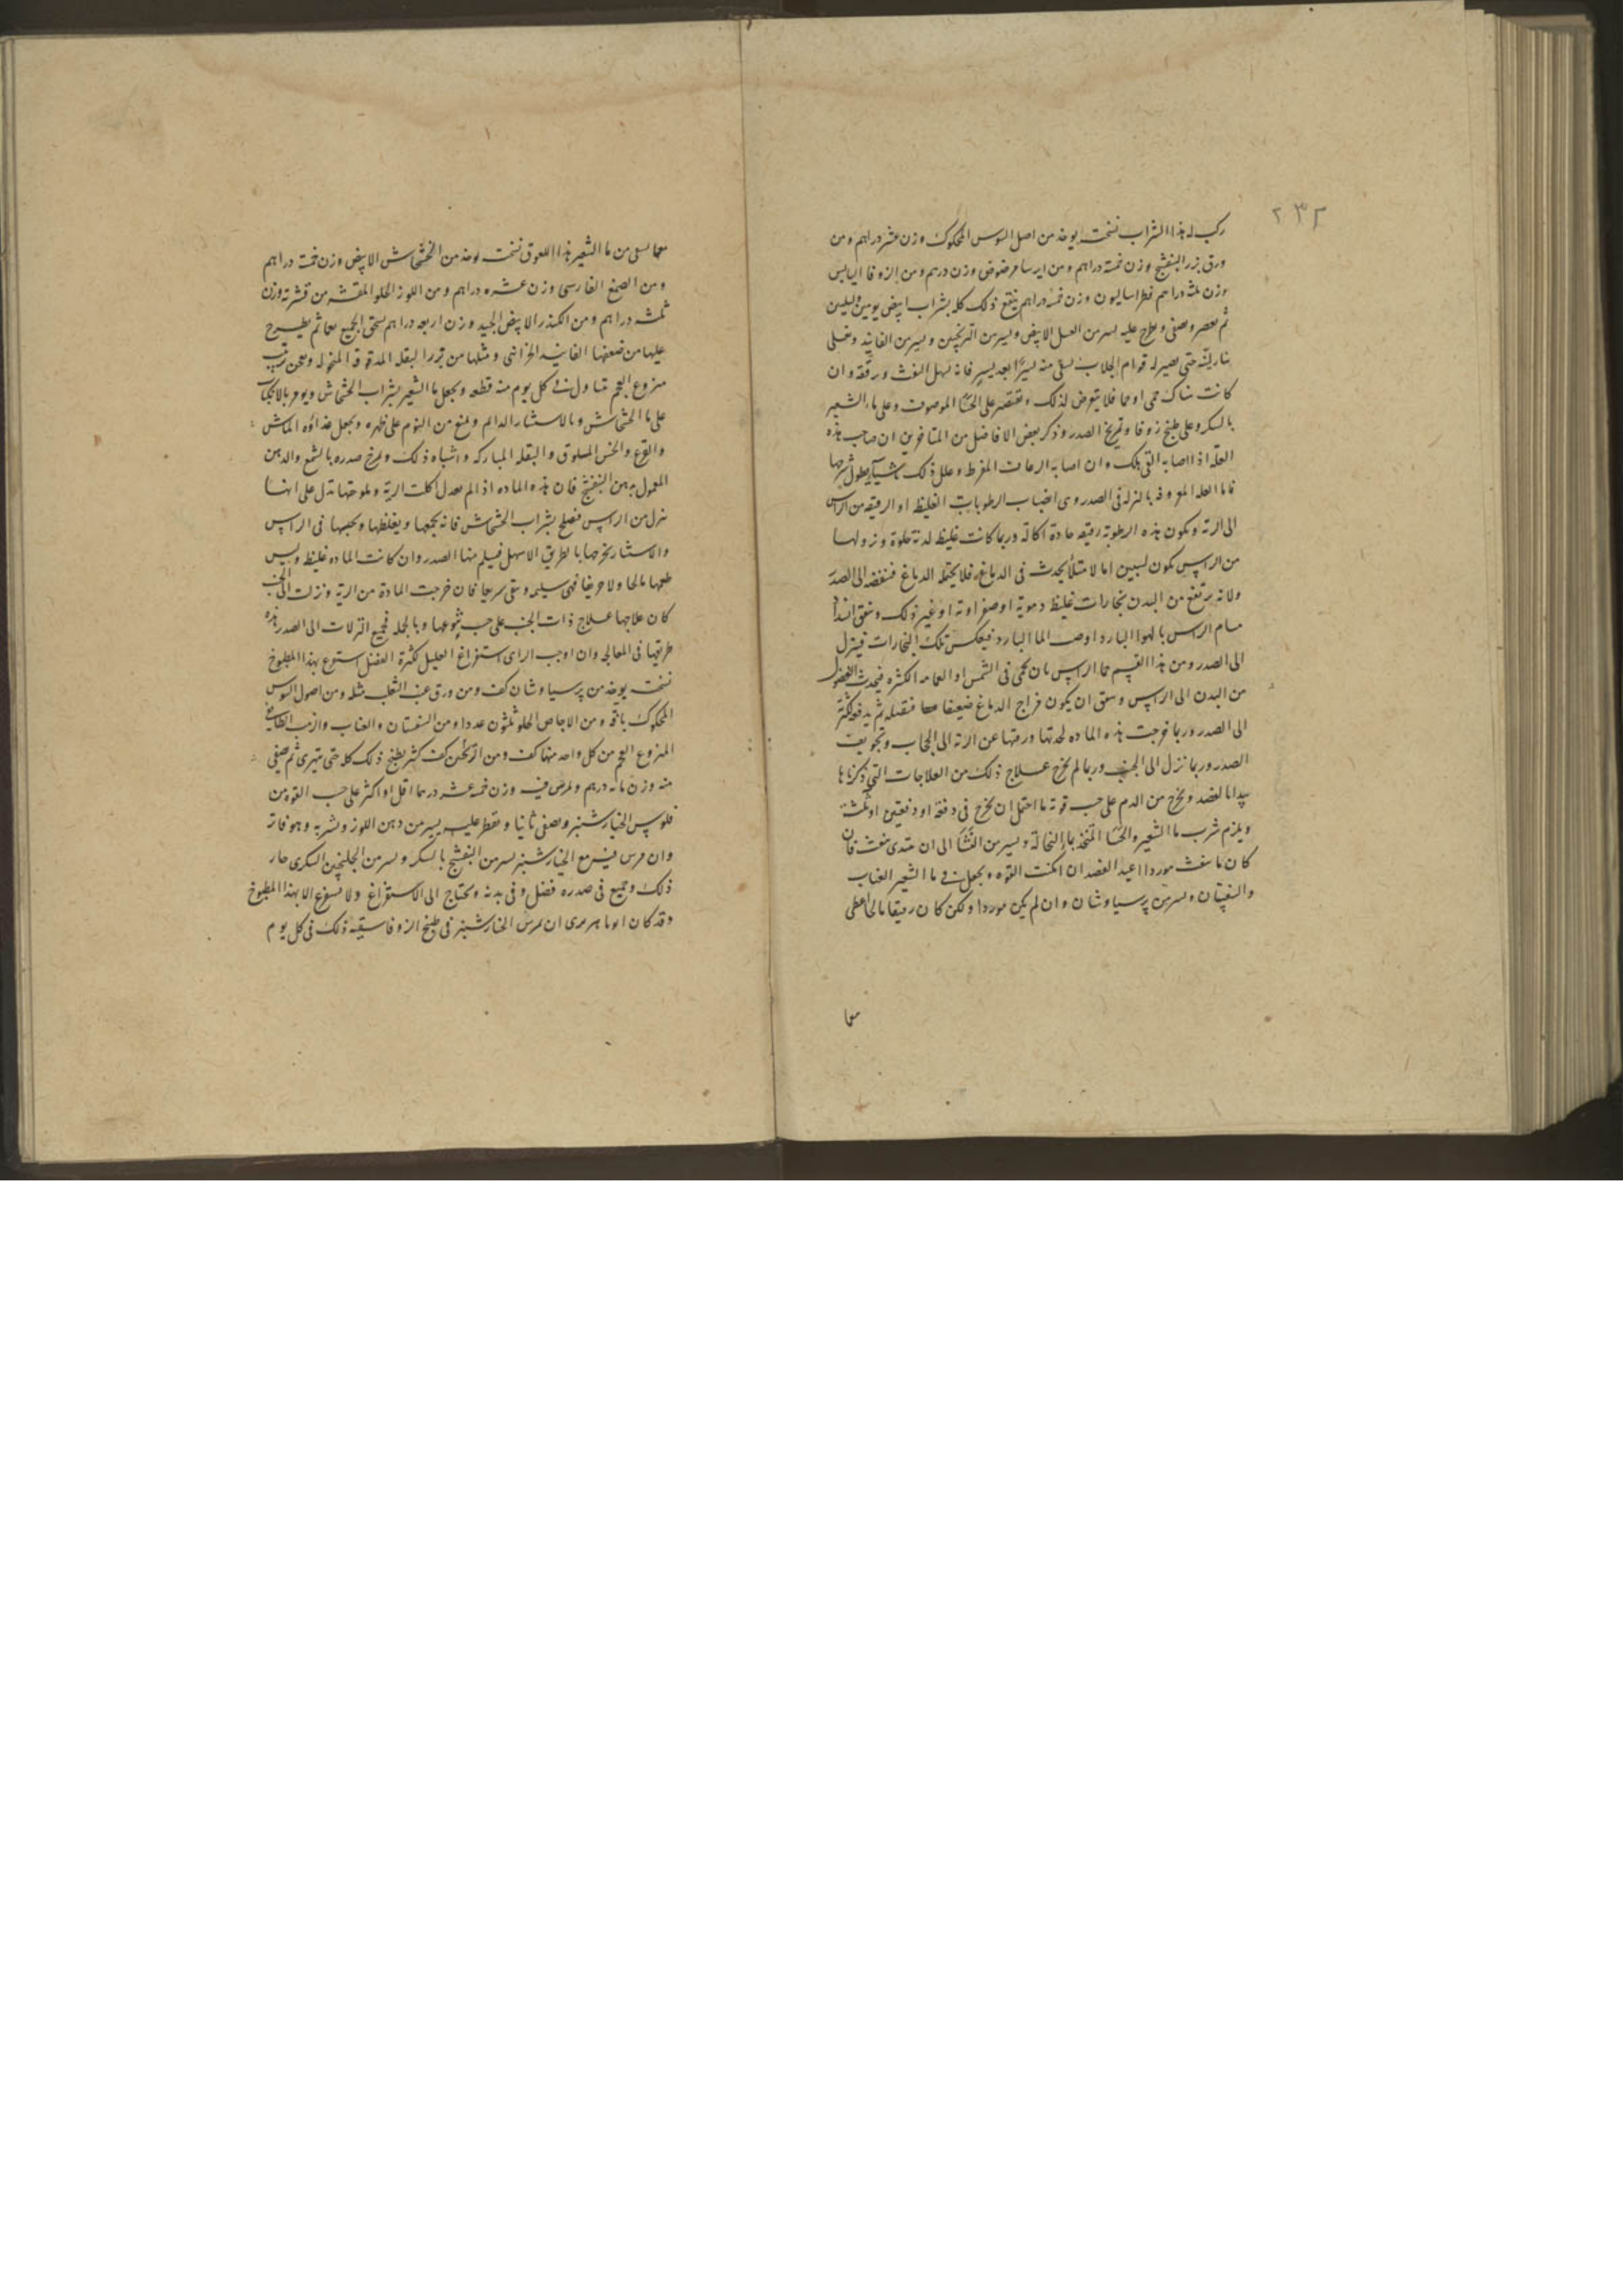 ٢٣٢
ركب له هذا الشراب نسخته يوخذ من اصل السوس المحكوك وزن عشر دراهم ومن
ورق بزر البنفسج وزن خمسة دراهم ومن ايرسا مرضوض وزن درهم ومن الزوفا اليابس
وزن ثلثه دراهم فطراساليون وزن خمسة دراهم ينقع ذلك كله بشراب ابيض يومين وليلتين
ثم يعصر ويصفى ويطرح عليه يسير من العسل الابيض ويسير من الترنجبين ويسير من الفانيذ ويغلى
بنار لينة حتى يصير له قوام الجلاب يسقى منه يسيرا بعد يسير فانه يسهل النفث ويرققه وان
كانت هناك حمى او حما فلا يتعرض لذلك ويقتصر على الحسا الموصوف وعلى ماء الشعير
بالسكر وعلى طبيخ زوفا وتمريخ الصدر وذكر بعض الافاضل من المتاخرين ان صاحب هذه
العلة اذا اصابه القى هلك وان اصابه الرعاف المفرط وعلل ذلك باشياء يطول شرحها
فاما العله المعروفه بالنزله فى الصدر وهى انصباب الرطوبات الغليظه او الرقيقه من الراس
الى الرئة ويكون هذه الرطوبة رقيقه حادة اكالة وربما كانت غليظه لدنة حلوة ونزولها
من الراس يكون لسببين اما لامتلاء يحدث فى الدماغ فلا يحتمله الدماغ فتنفضه الى الصدر
ولانه يرتفع من البدن بخارات غليظه دموية او صفراوية او غير ذلك ويتفق انسداد
مسام الراس بالهوا البارد او صب الما البارد فيعكس تلك البخارات فينزل
الى الصدر ومن هذا القسم حما الراس بان يحمى فى الشمس او العمامه الكثيره فيجذب الفضول
من البدن الى الراس ويتفق ان يكون مزاج الدماغ ضعيفا فتقبله ثم يدفع لكثرته
الى الصدر وربما خرجت هذه الماده لحدتها ورقتها عن الرئة الى الحجاب وتجويف
الصدر وربما نزل الى الجنب وربما لم يخرج علاج ذلك من العلاجات التى ذكرناها
يبدا بالفصد ويخرج من الدم على حسب قوته ما احتمل ان يخرج فى دفعة او دفعتين او ثلثة
ويلزم شرب ما الشعير والحسا المتخذ بماء النخالة ويسير من النشا الى ان يبتدى ينفث فان
كان ما ينفث موردا اعيد الفصد ان امكنت القوه ويجعل فى ما الشعير العناب
والسفستان ويسير من پرسياوشان وان لم يكن موردا ولكن كان رقيقا مالحا اعطى
معما
معما يسقى من ما الشعير هذا اللعوق نسخته يوخذ من الخشخاش الابيض وزن خمسة دراهم
ومن الصمغ الفارسى وزن عشره دراهم ومن اللوز الحلو المقشر من قشرته وزن
ثلثه دراهم ومن الكندر الابيض الجيد وزن اربعه دراهم يسحق الجميع معا ثم يطرح
عليها من ضعفها الفانيد الخزائنى ومثلها من بزر البقلة المدقوقة المنخوله ويعجن بزبيب
منزوع العجم يتناول فى كل يوم منه قطعه ويجعل ما الشعير بشراب الخشخاش ويومر بالانكباب
على ما الخشخاش وبالاستنثار الدائم ويمنع من النوم على ظهره ويجعل غذاؤه الماش
والقرع والخس المسلوق والبقله المباركه واشباه ذلك ويمرخ صدره بالشمع والدهن
المعمول بدهن البنفسج فان هذه الماده اذا لم يعدل اكلت الرية وملوحتها تدل على انها
تنزل من الراس فيصلح بشراب الخشخاش فانه يجمعها ويغلظها ويحبسها فى الراس
والاستنثار يخرجها بالطريق الاسهل فيسلم منها الصدر وان كانت الماده غليظه وليس
طعمها مالحا ولا حريفا فهى سليمه وتنقى سريعا فان خرجت المادة من الرية ونزلت الى الجنب
كان علاجها علاج ذات الجنب على حسب تنوعها وبالجمله فجميع النزلات الى الصدر هذه
طريقها فى المعالجه وان اوجب الراى استفراغ العليل لكثرة الفضل استفرغ بهذا المطبوخ
نسخته يوخذ من پرسياوشان كف ومن ورق عنب الثعلب مثله ومن اصول السوس
المحكوك باقة ومن الاجاص الحلو ثلثون عددا ومن السفستان والعناب والزبيب الطائفى
المنزوع العجم من كل واحد منها كف ومن الترنجبين كف كثير يطبخ ذلك كله حتى يتهرى ثم يصفى
منه وزن مائه درهم ويمرض فيه وزن خمسة عشر درهما اقل او اكثر على حسب القوه من
فلوس الخيار شنبر ويصفى ثانيا ويقطر عليه يسير من دهن اللوز ويشربه وهو فاتر
وان مرس فيه مع الخيار شنبر يسير من البنفسج بالسكر ويسير من الجلنجبين السكرى جاز
ذلك وجميع فى صدره فضل وفى بدنه ويحتاج الى الاستفراغ ولا يستفرغ الا بهذا المطبوخ
وقد كان ابو ماهر يرى ان يمرس الخيار شنبر فى طبيخ الزوفا يسقيه ذلك فى كل يوم